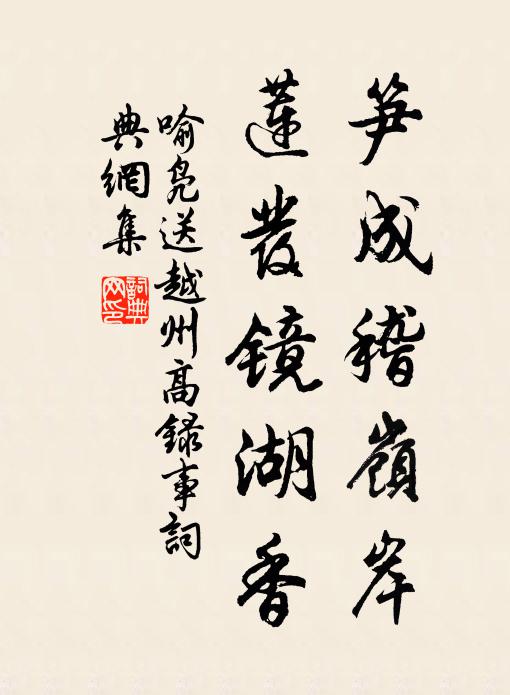 笋成稽嶺岸
蓮發鏡湖香
喻鳧送越州高錄事詞
典網集
詞典網印